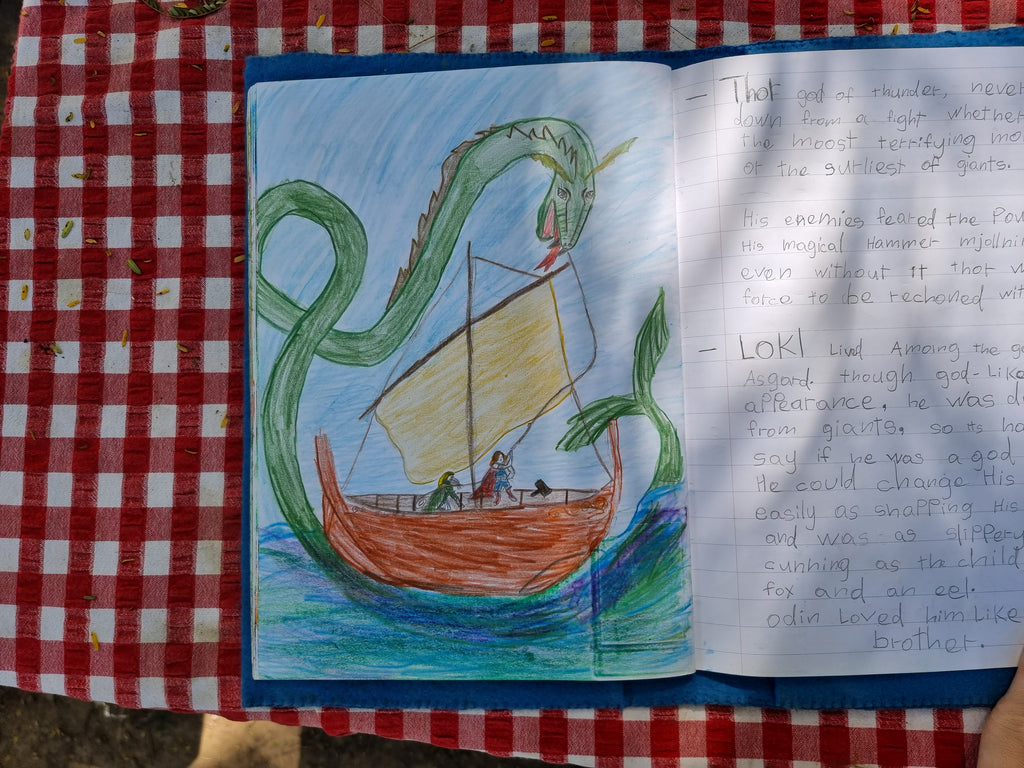 - Thor god of thunder, never
down from a fight whether
the moost terrifying
or the surliest of giants.
His enemies feared the
His magical Hammer
even without it thor
force to be reckoned
- LOKI Lived Among the
Asgard. though god-Like
appearance, he was
from giants, so its
say if he was a god
He could change His
easily as shapping His
and was as slippery
cunning as the child
fox and an eel.
odin Loved him Like
brother.